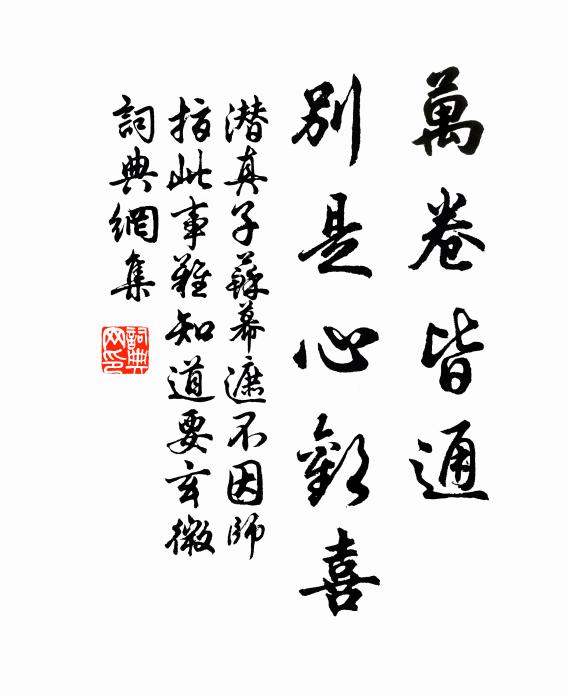 萬卷皆通
別是心歡喜
潜真子蘇幕遮不因師
指此事難知道要玄微
詞典網集
詞典網印